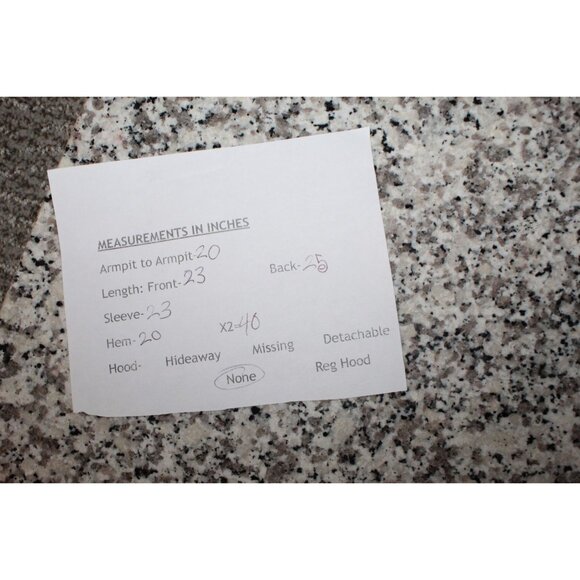 MEASUREMENTS IN INCHES
Armpit to Armpit-20
Length: Front-23 Back-25
Sleeve-23
Hem-20 X2=40
Hood- Hideaway Missing Detachable
None Reg Hood